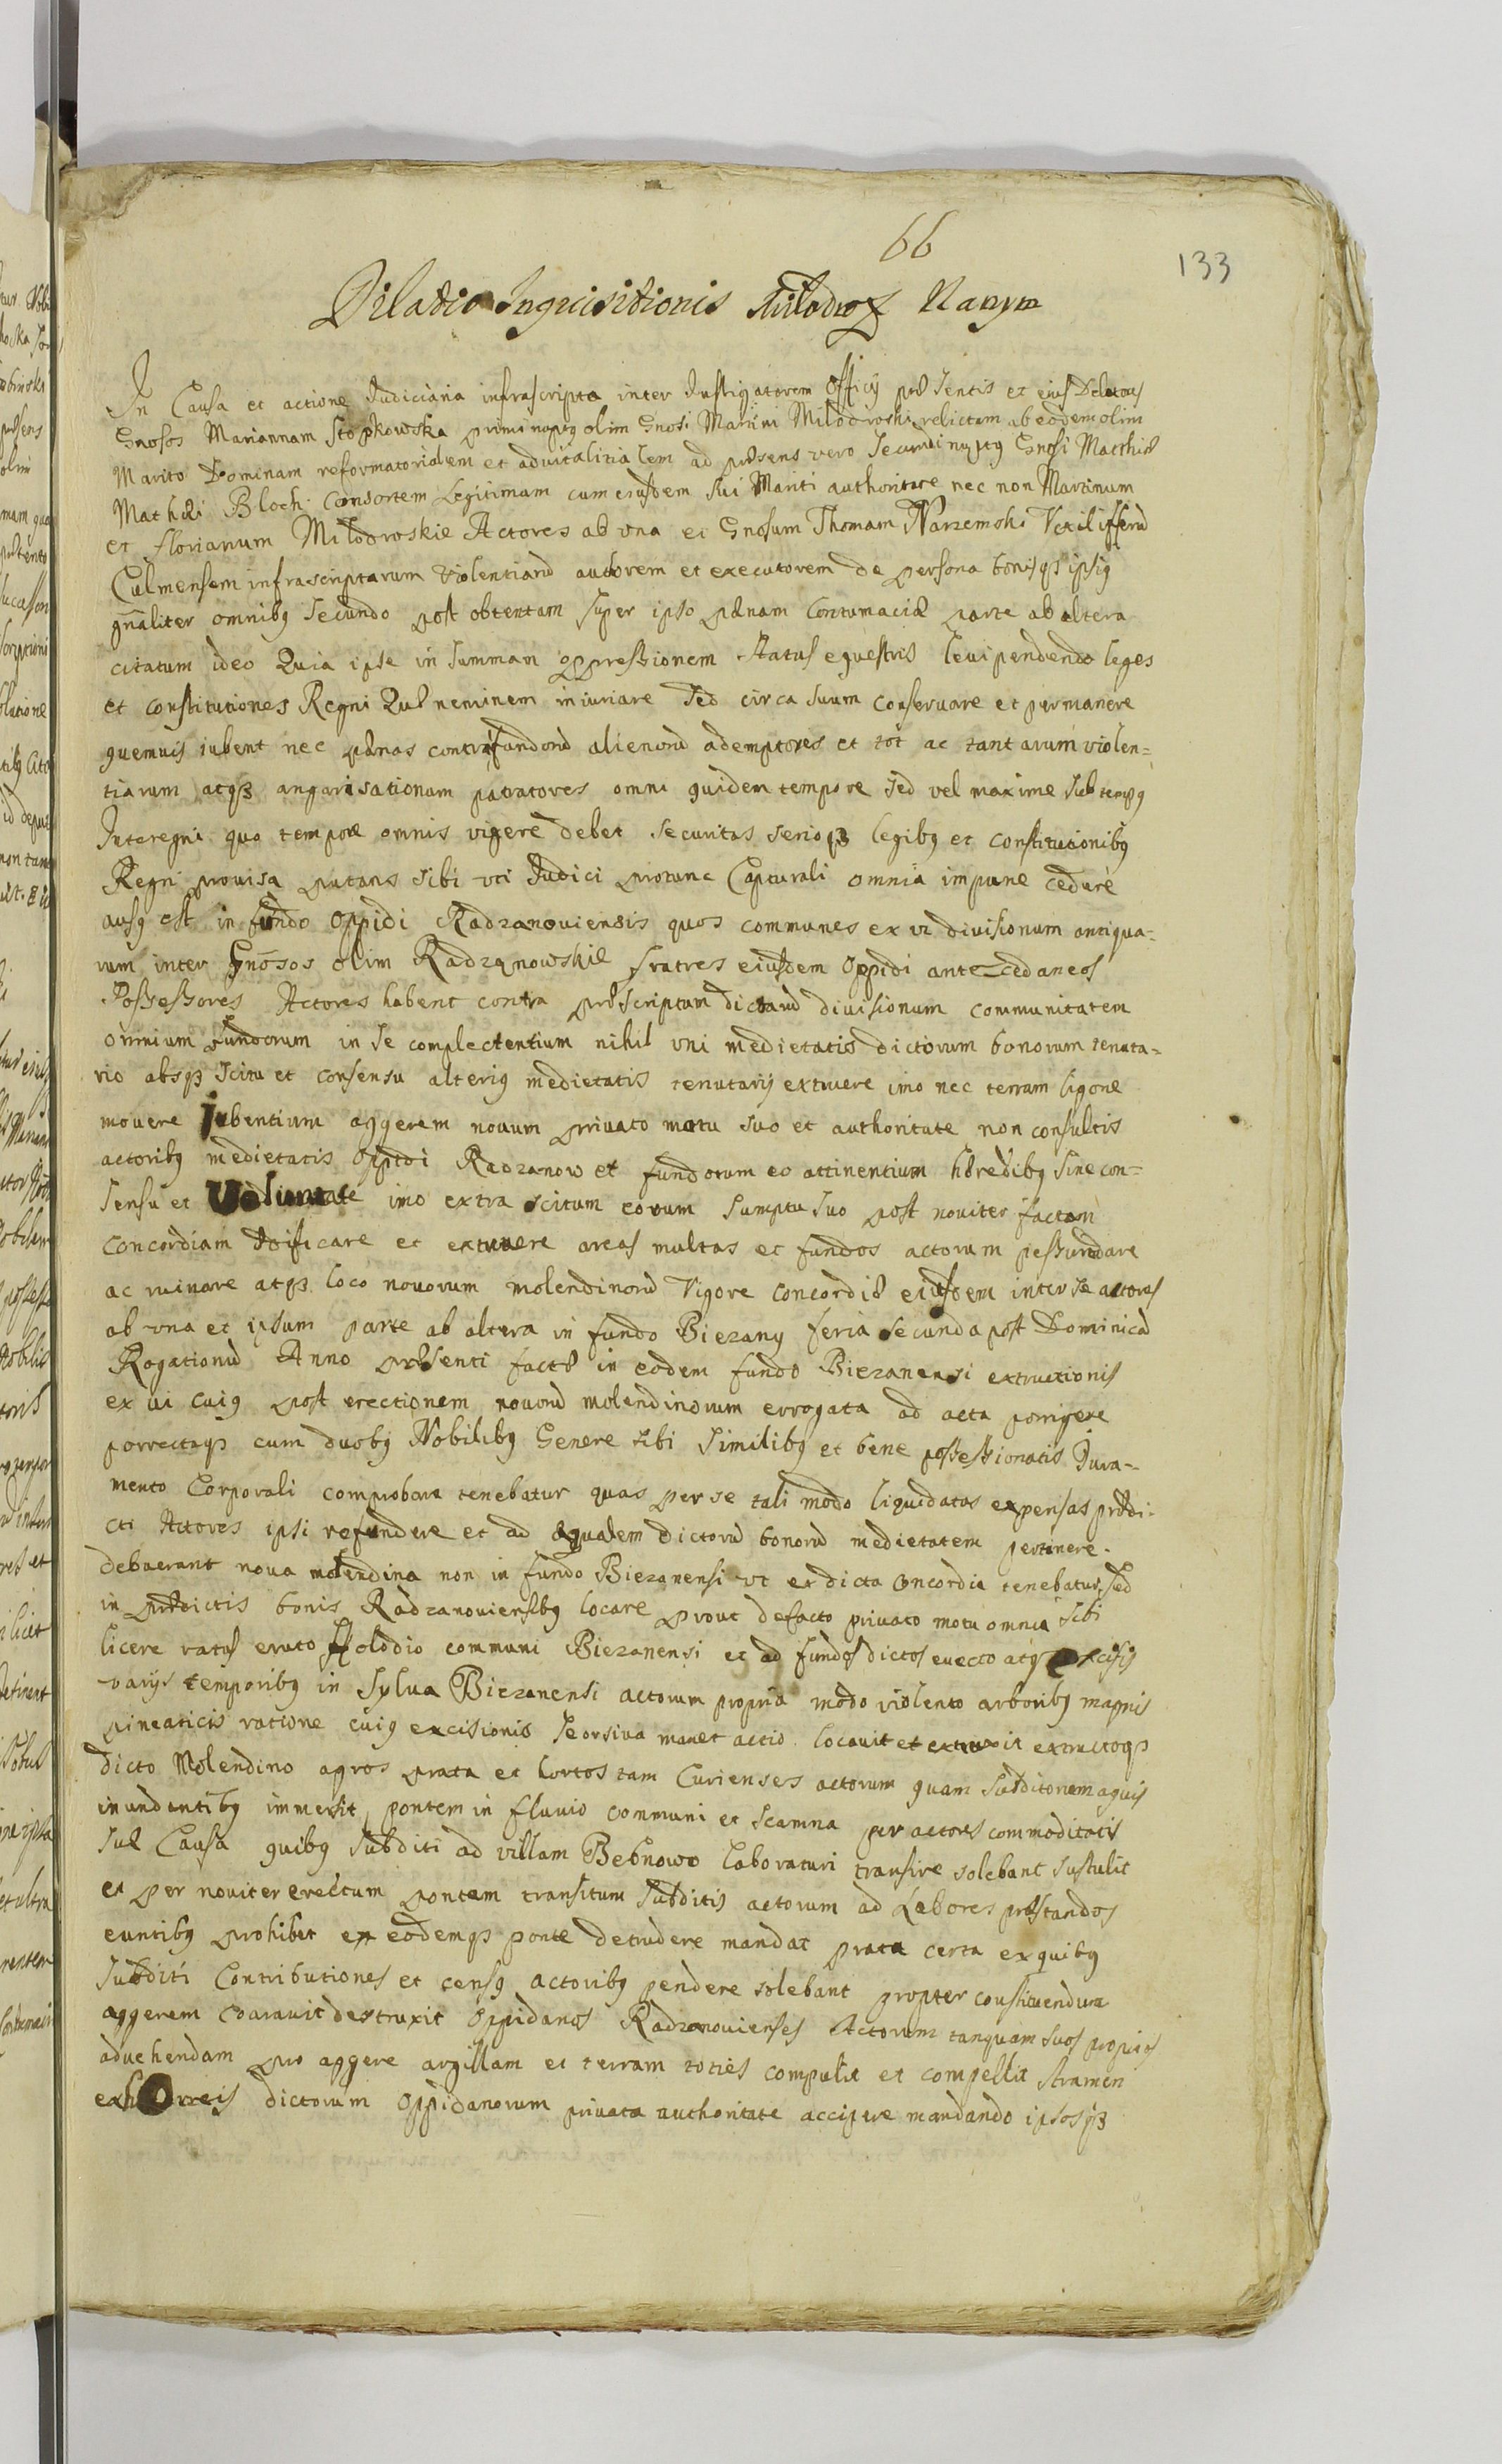 66
133
Dilatio Inquisitionis Miłodroz Narzym
In Causa et actione Judiciaria infrascripta inter Instigatorem Officij præsentis et eius Delatores
Gnosos Mariannam Stopkowska primi nuptq olim Gnosi Martini Miłodroski relictam ab eodem olim
Marito Dominam reformatorialem et aduitalitialem ad præsens vero Secundi nuptq Gnosi Matthiæ
Mathæi Bloch Consortem Legitimam cum eiusdem sui Mariti authoritate nec non Martinum
et Florianum Miłodroskie Actores ab vna et Gnosum Thomam Narzemski Vexilliferũ
Culmensem infrascriptarum violentiarũ autorem et executorem de persona bonisq3 ipsiq
gnãliter omnibq Secundo post obtentam super ipso pænam Contumaciæ parte ab altera
citatum ideo Quia ipse in summam oppressionem status equestris leuipendendo leges
et constitutiones Regni Quæ neminem iniuriare sed circa suum conseruare et permanere
quemuis iubent nec pænas contra fundorũ alienorũ ademptores et tot ac tantarum violen=
tiarum atq3 angarisationum patratores omni quidem tempore sed vel maxime sub tempq
Interegni quo tempore omnis vigere debet securitas serioq3 legibq et constitutionibq
Regni prouisa putans sibi vti Judici protunc Capturali omnia impune cedere
ausq est in fundo oppidi Radzanouiensis quos communes ex vi diuisionum antiqua=
rum inter Gnosos olim Radzanowskie fratres eiusdem Oppidi antecedaneos
Possessores Actores habent contra præscriptum dictarũ diuisionum communitatem
omnium fundorum in se complectentium nihil vni medietatis dictorum bonorum tenuta=
rio absq3 scitu et consensu alteriq medietatis tenutarij extruere imo nec terram ligone
mouere iubentium aggerem nouum priuato motu suo et authoritate non consultis
actoribq medietatis Oppidi Radzanow et fundorum eo attinentium hæredibq sine con=
sensu et Voluntate imo extra scitum eorum sumptu suo post nouiter factam
concordiam ædificare et extruere areas multas et fundos actorum pessundare
ac ruinare atq3 loco nouorum molendinorũ Vigore concordiæ eiusdem inter se actores
ab vna et ipsum parte ab altera in fundo Biezany feria secunda post Dominicã
Rogationũ Anno præsenti factæ in eodem fundo Biezanensi extructionis
ex vi cuiq post erectionem nouorũ molendinorum errogata ad acta porrigere
porrectaq3 cum duobq Nobilibq Genere sibi similibq et bene possessionatis Jura-
mento Corporali comprobare tenebatur quas per se tali modo liquidatas expensas prædi-
cti Actores ipsi refundere et ad æqualem dictorũ bonorũ medietatem pertinere
debuerant noua molendina non in fundo Biezanensi vt ex dicta concordia tenebatur sed
in prædictis bonis Radzanouiensibq locare prout defacto priuato motu omnia sibi
licere ratus eruto communi Biezanensi et ad fundos dictos euecto atq3 excisis
varijs temporibq in Sylua Biezanensi actorum propria modo violento arboribq magnis
pineaticis ratione cuiq excisionis seorsiua manet actio locauit et extruxit extructoq3
dicto Molendino agros prata et hortos tam Curienses actorum quam subditorum aquis
inundantibq immersit pontem in fluuio communi et scamna per actores commoditatis
suæ Causa quibq subditi ad villam Bebnowo laboraturi transire solebant sustulit
et per nouiter erectum pontem transitum subditis actorum ad Labores præstandos
euntibq prohibet ex eodemq3 ponte detrudere mandat prata certa ex quibq
subditi Contributiones et censq actoribq pendere solebant propter constituendum
aggerem destruxit Oppidanos Radzanouienses Actorum tanquam suos proprios
aduehendam pro aggere argillam et terram toties compulit et compellit stramen
ex horreis dictorum Oppidanorum priuata authoritate accipere mandando ipsosq3